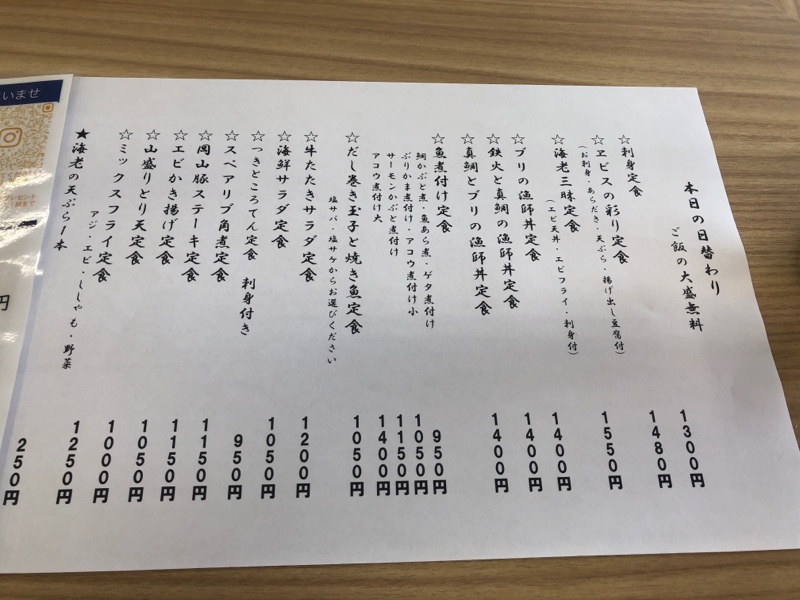 本日の日替わり
ご飯の大盛無料
1300円
☆刺身定食
1480円
☆ヱビスの彩り定食
(お刺身・あらだき・天ぷら・揚げ出し豆腐付)
1550円
☆海老三昧定食
(エビ天丼・エビフライ・刺身付)
1400円
☆ブリの漁師丼定食
1400円
☆鉄火と真鯛の漁師丼定食
1400円
☆真鯛とブリの漁師丼定食
☆魚煮付け定食
鯛かぶと煮・魚あら煮・ゲタ煮付け
950円
ぶりかま煮付け・アコウ煮付け小
1050円
サーモンかぶと煮付け
1150円
アコウ煮付け大
1400円
☆だし巻き玉子と焼き魚定食
塩サバ・塩サケからお選びください
1050円
☆牛たたきサラダ定食
1200円
☆海鮮サラダ定食
1050円
☆つきところてん定食 刺身付き
950円
☆スペアリブ角煮定食
1150円
☆岡山豚ステーキ定食
1150円
☆エビかき揚げ定食
1050円
☆山盛りとり天定食
1000円
☆ミックスフライ定食
アジ・エビ・ししゃも・野菜
1250円
★海老の天ぷら1本
250円
いませ
円